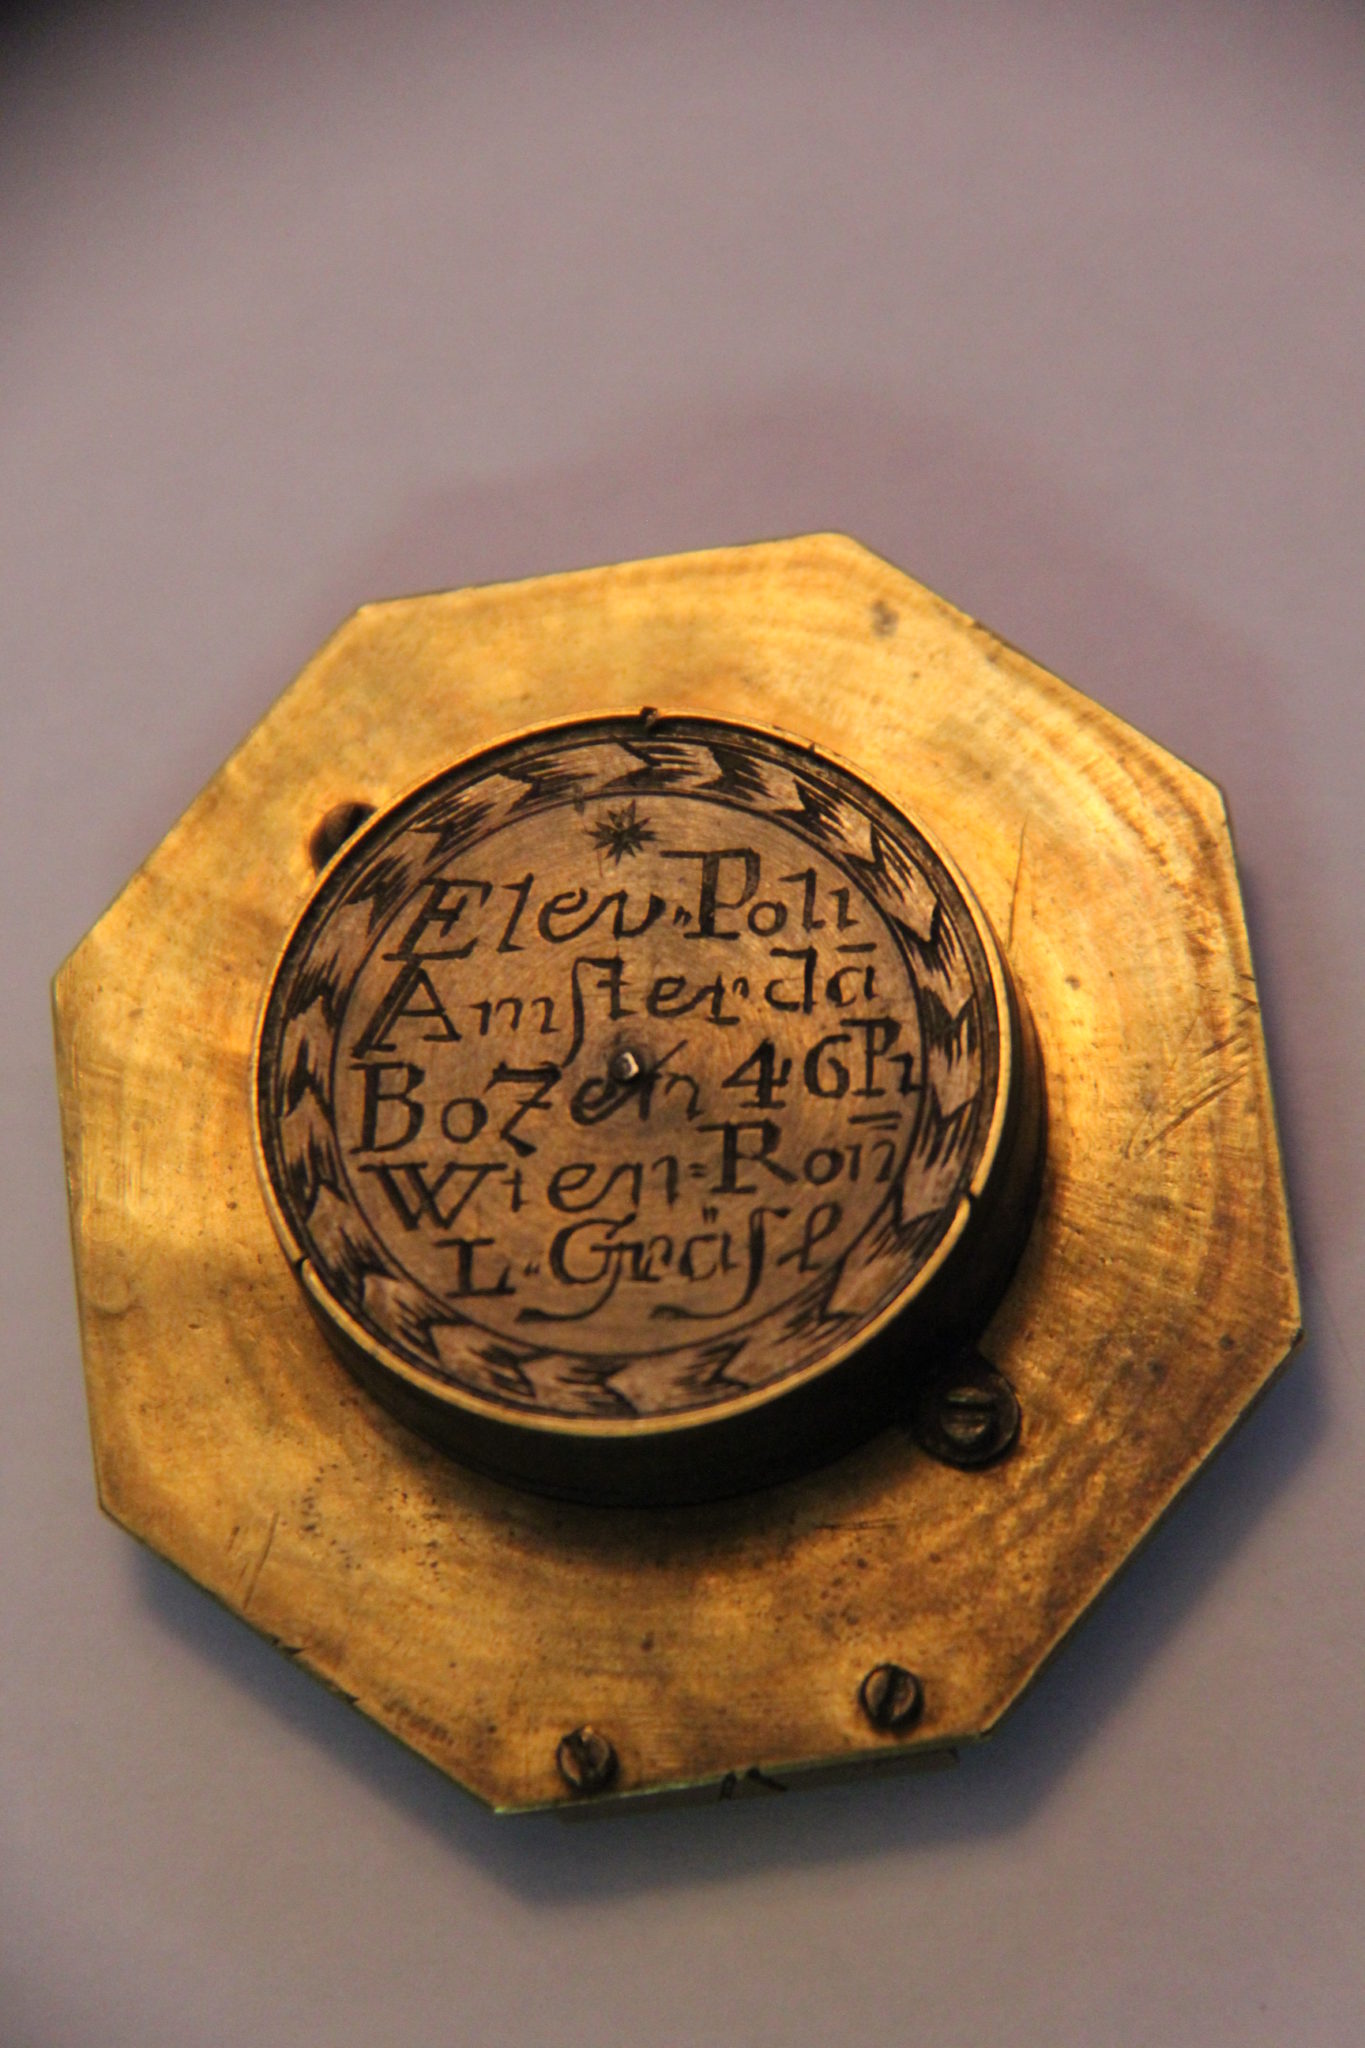 Elev„Poli
Amſterdā
Bozen 46 Pr
Wien=Rom̄
L„Gräſl